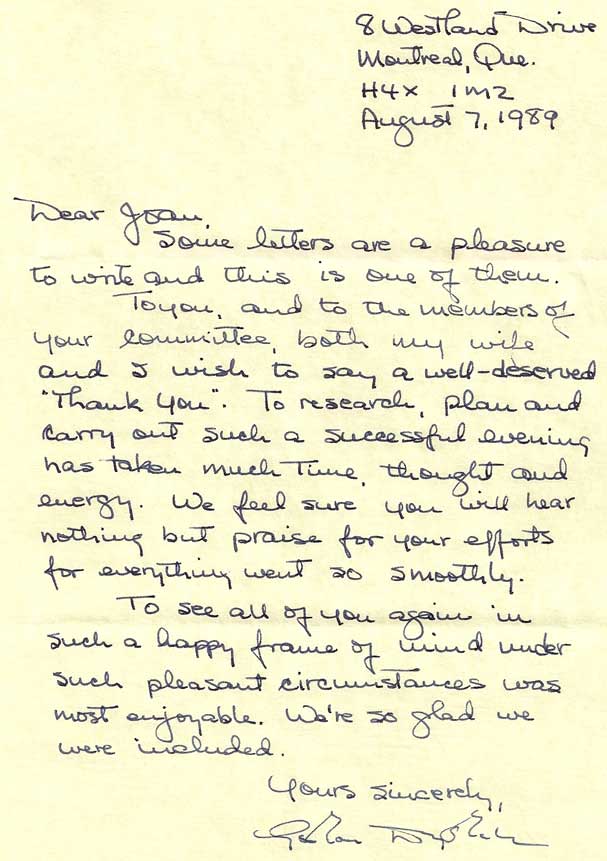 8 Westland Drive
Montreal, Que.
H4X 1M2
August 7, 1989
Dear Joan,
Some letters are a pleasure
to write and this is one of them.
To you, and to the members of
your committee, both my wife
and I wish to say a well-deserved
"Thank You". To research, plan and
carry out such a successful evening
has taken much time, thought and
energy. We feel sure you will hear
nothing but praise for your efforts
for everything went so smoothly.
To see all of you again in
such a happy frame of mind under
such pleasant circumstances was
most enjoyable. We're so glad we
were included.
Yours sincerely,